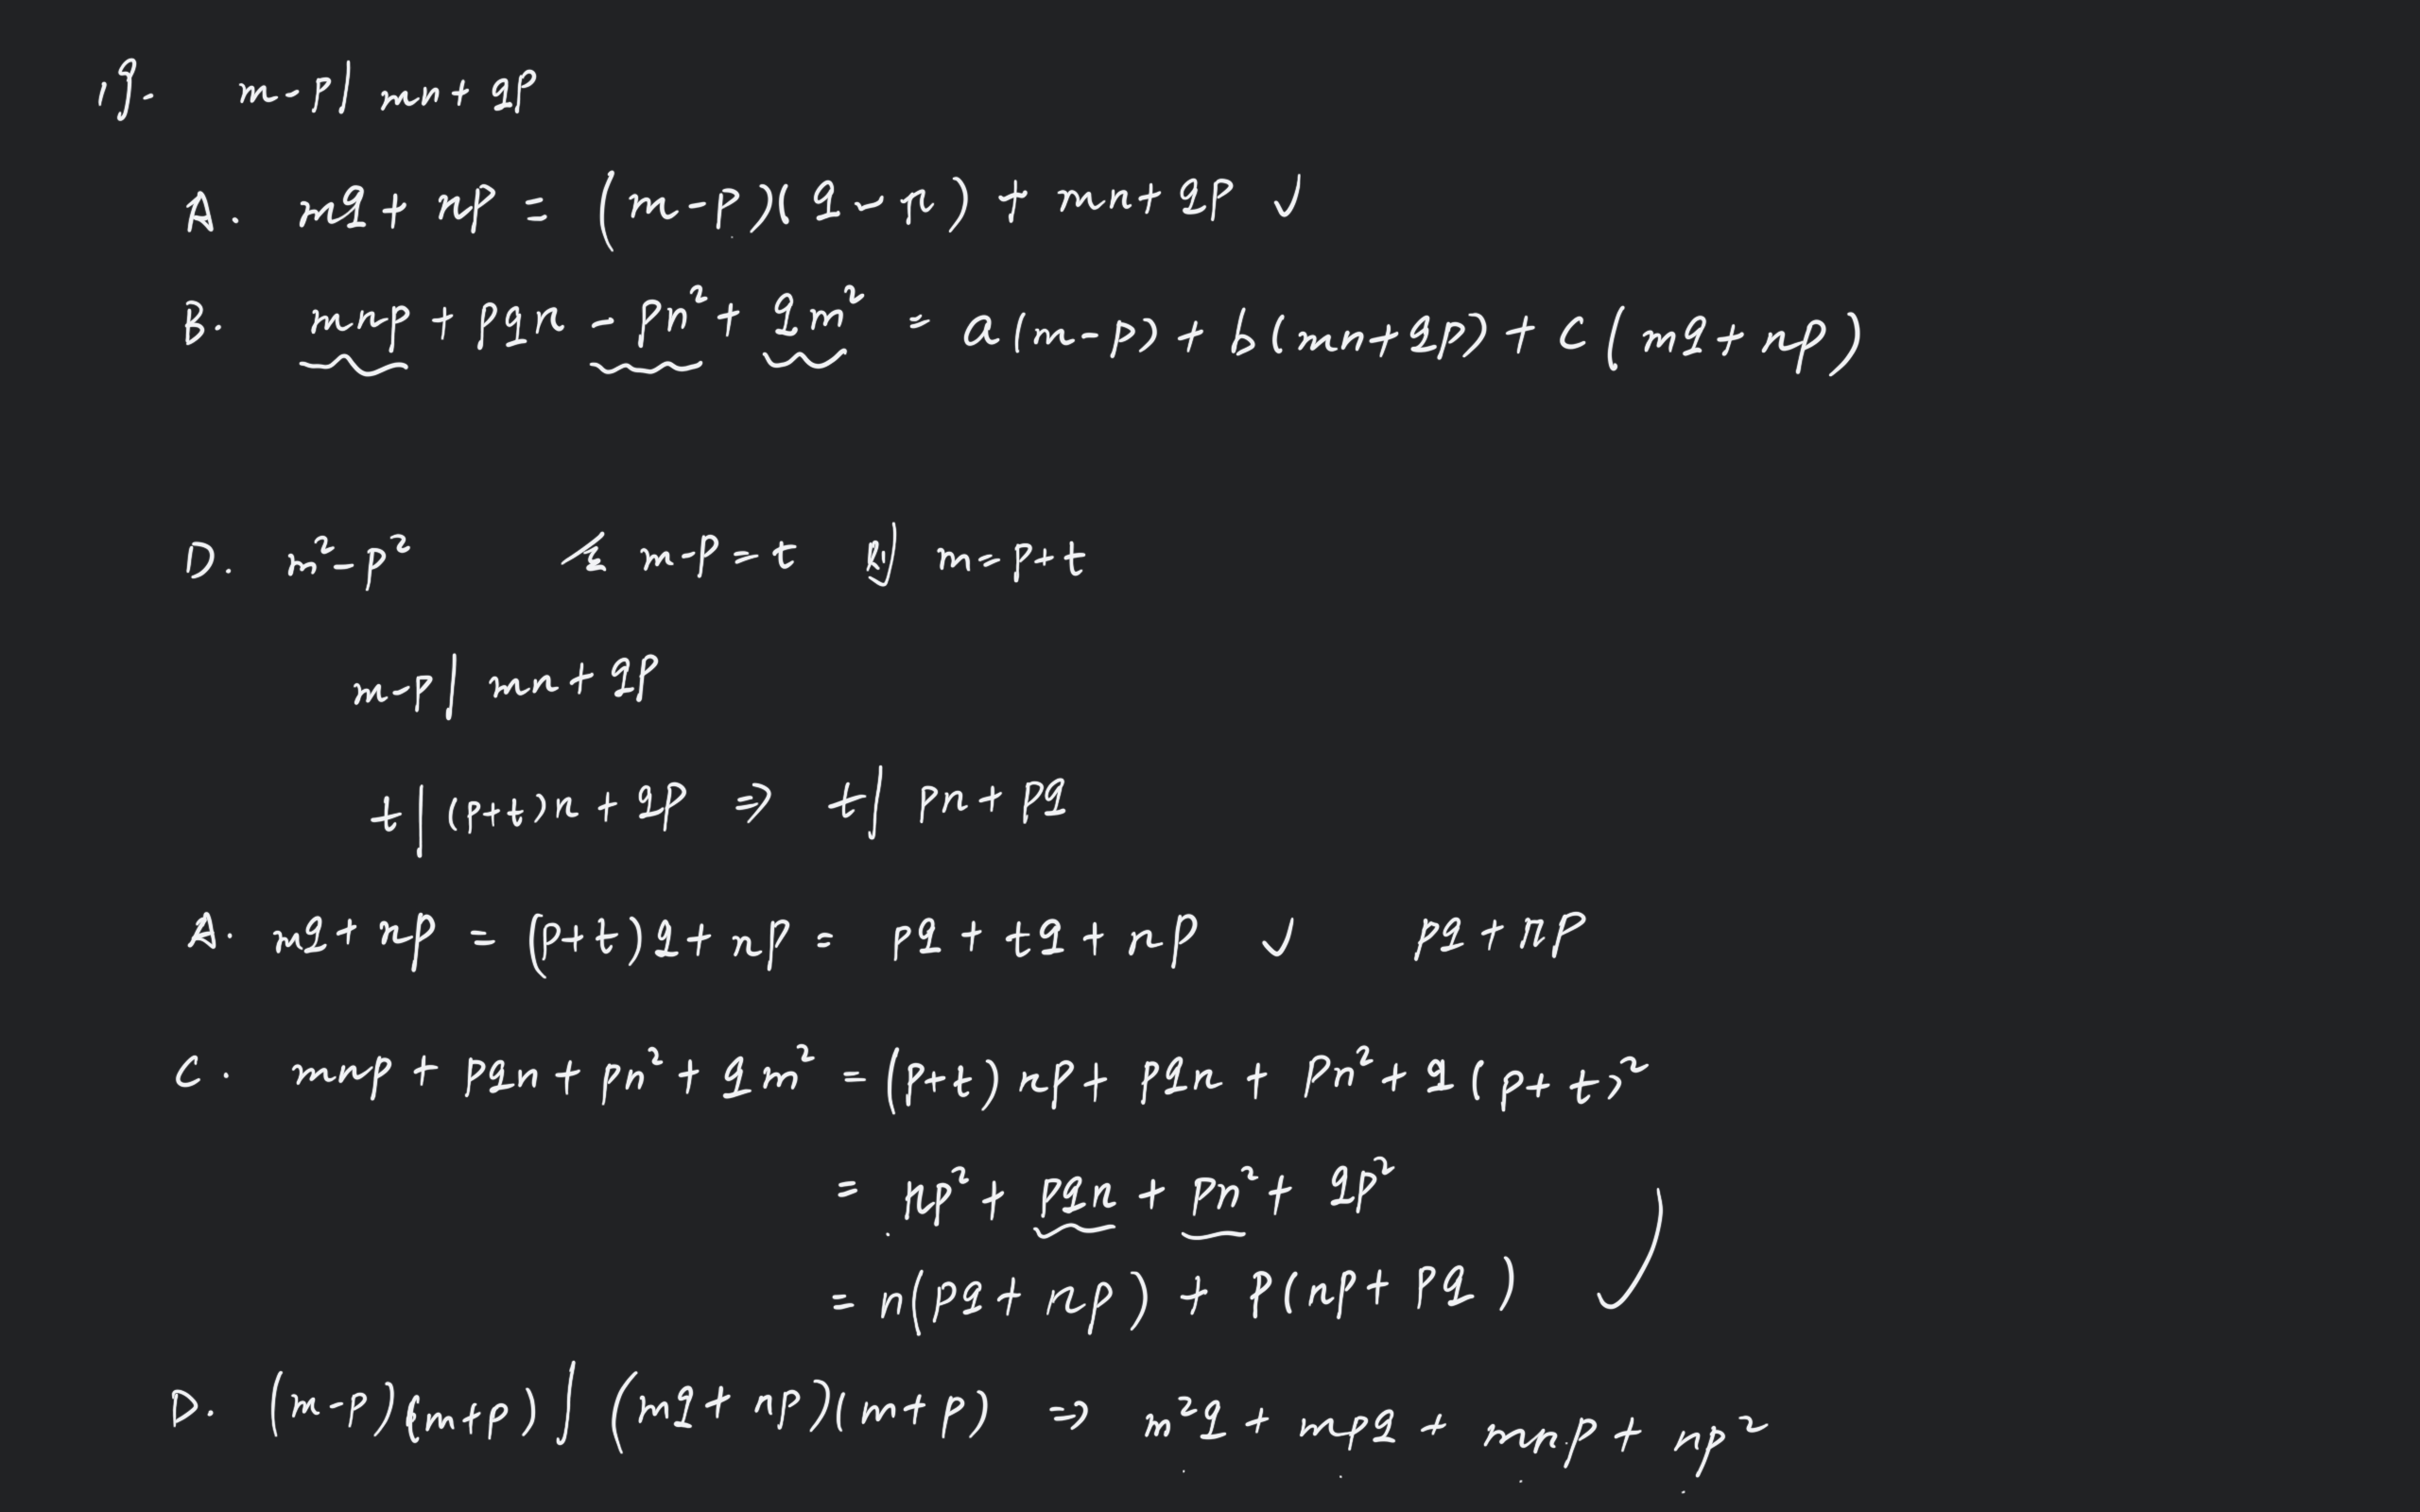 19. m-p | mn+qp
A. mq+np = (m-p)(q-n) + mn+qp ✓
B. mnp + pqn - pn² + qm² = a(m-p) + b(mn+qp) + c(mq+np)
D. m²-p² 令 m-p=t 则 m=p+t
m-p | mn+qp
t | (p+t)n+qp ⇒ t | pn+pq
A. mq+np = (p+t)q+np = pq+tq+np ✓ pq+np
C. mnp + pqn + pn² + qm² = (p+t)np + pqn + pn² + q(p+t)²
= np² + pqn + pn² + qp²
= n(pq+np) + p(np+pq) ✓
D. (m-p)(m+p) | (mq+np)(m+p) ⇒ m²q + mpq + mnp + np²